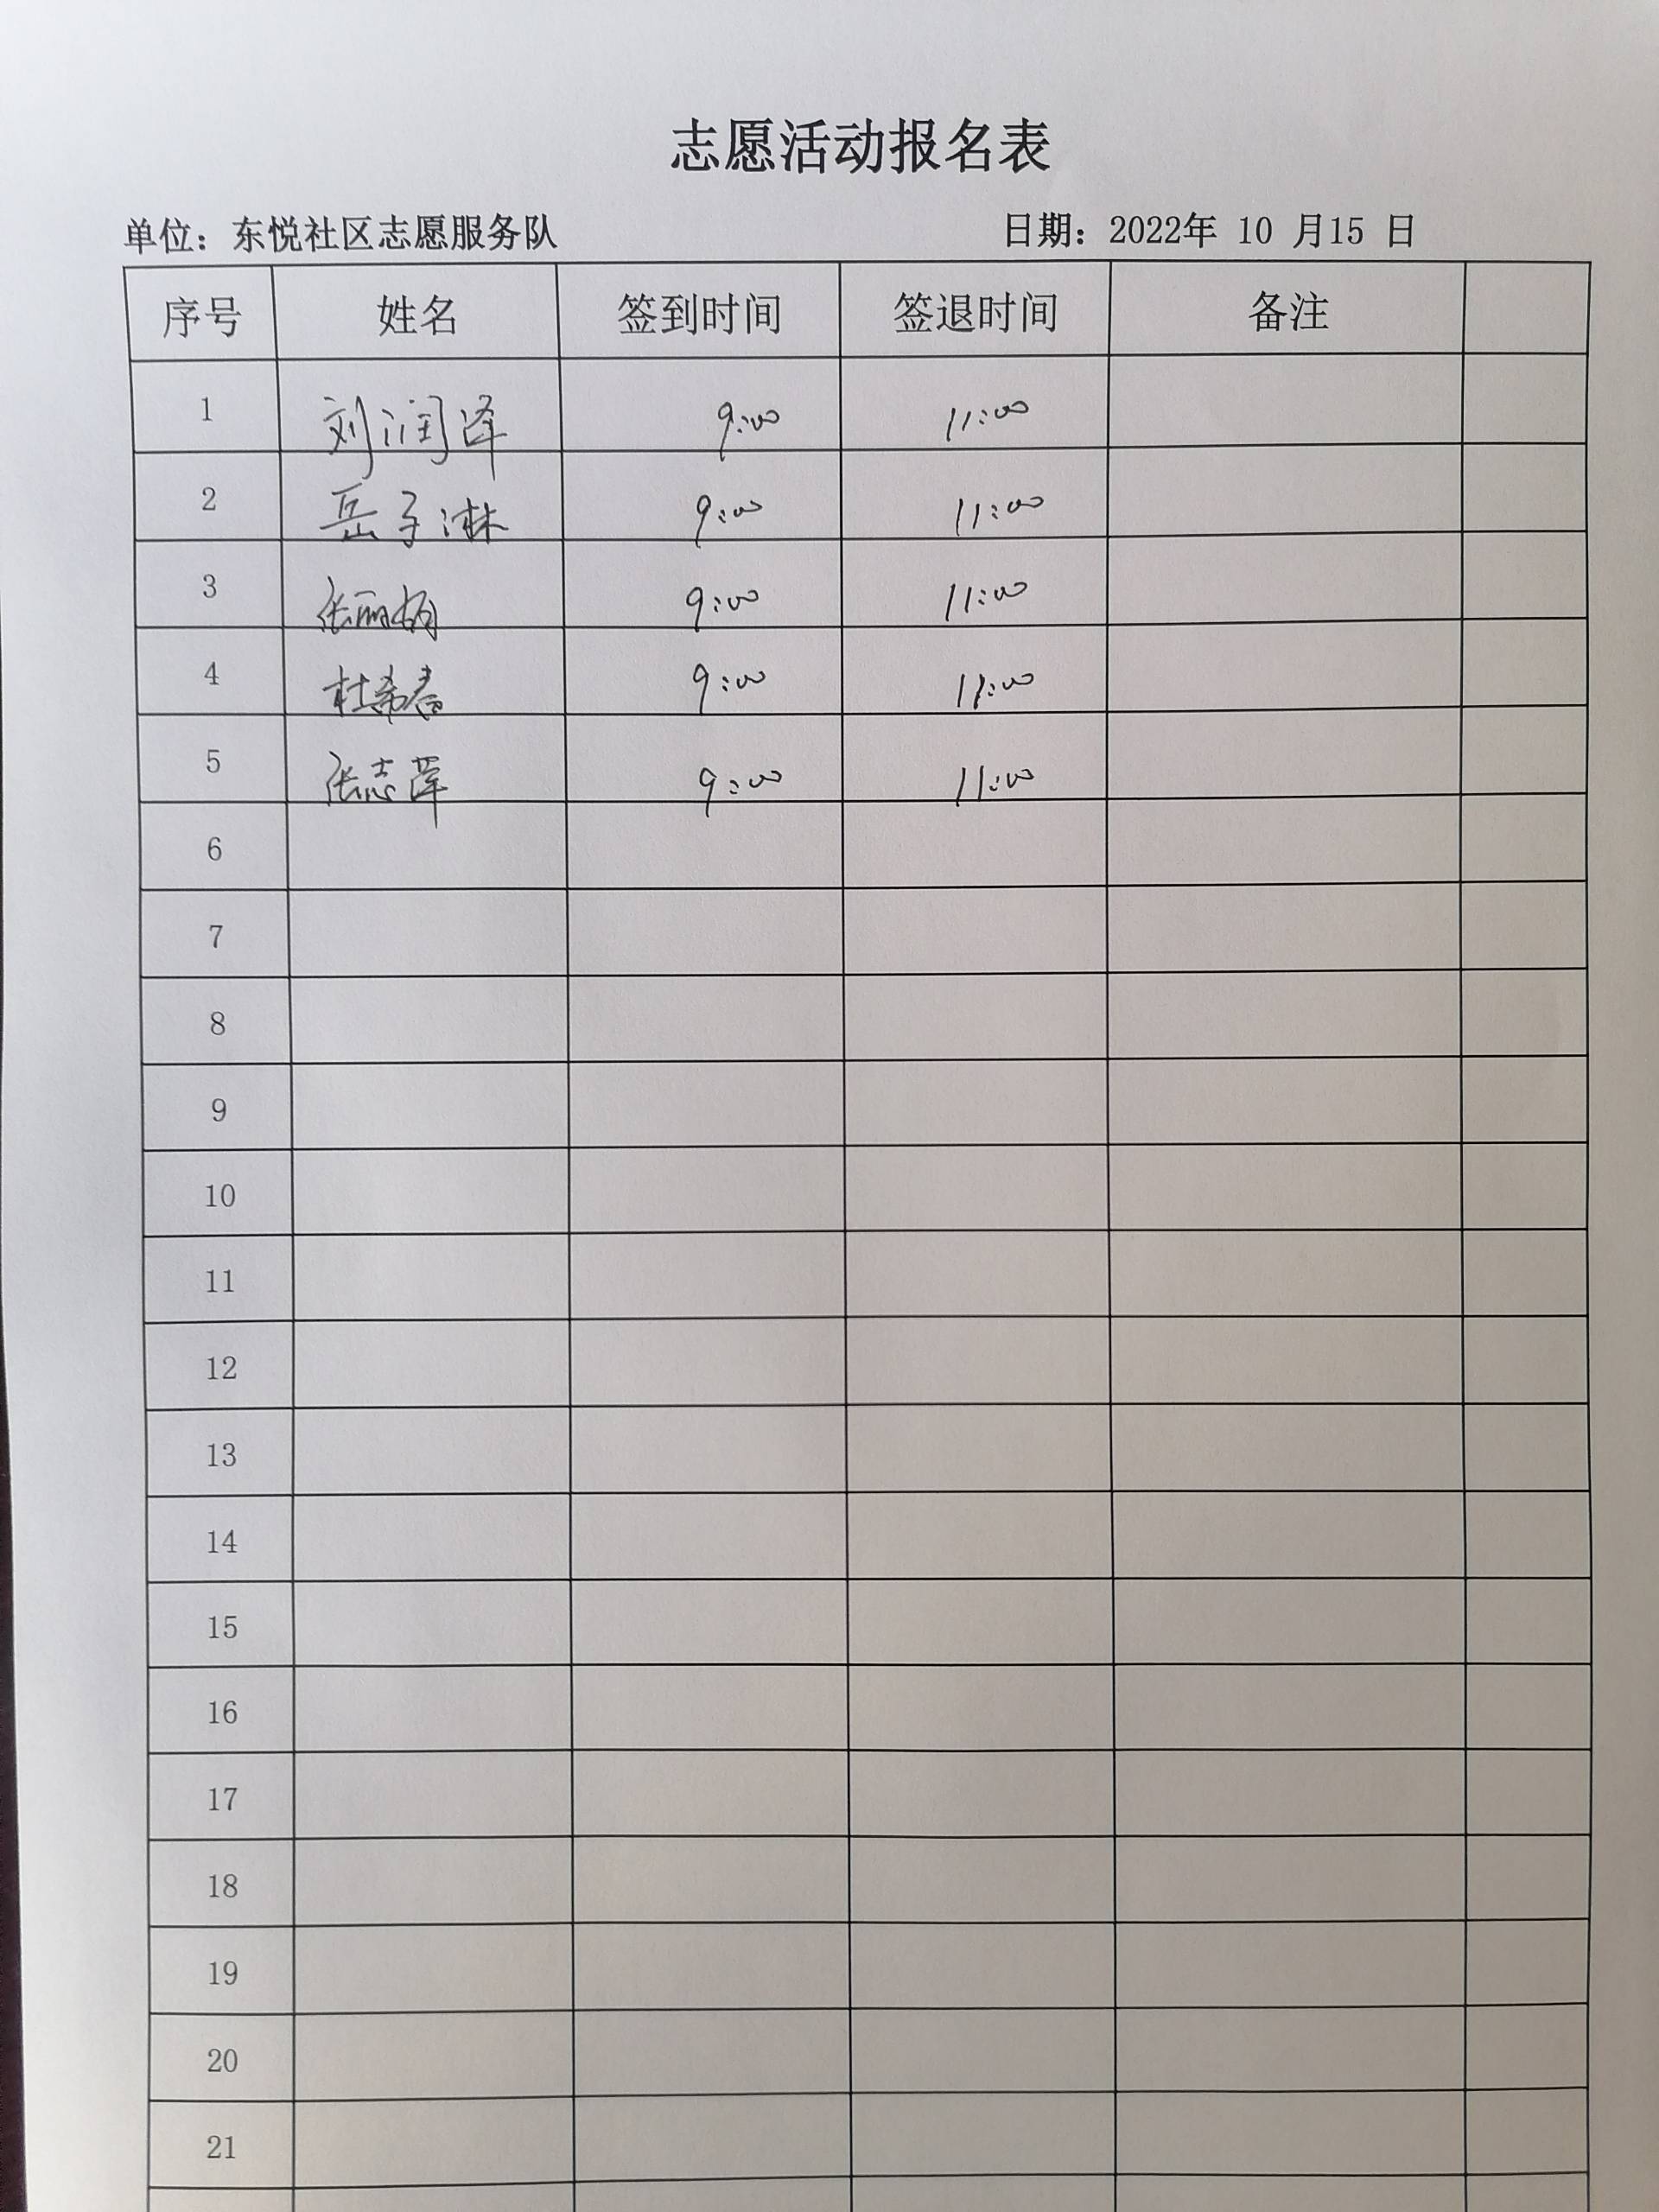 志愿活动报名表
单位：东悦社区志愿服务队 日期：2022年 10 月15 日
序号 姓名 签到时间 签退时间 备注
1 刘润泽 9:00 11:00
2 岳子淋 9:00 11:00
3 张丽娟 9:00 11:00
4 杜希春 9:00 11:00
5 张志萍 9:00 11:00
6
7
8
9
10
11
12
13
14
15
16
17
18
19
20
21